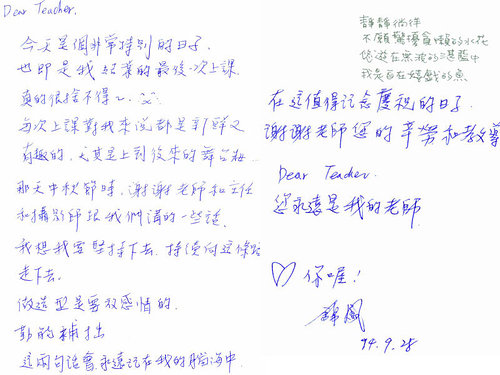 Dear Teacher.
今天是個非常特別的日子.
也即是我結業的最後一次上課.
真的很捨不得~.
每次上課對我來說都是新鮮又
有趣的.尤其是上到後來的舞台妝…
那天中秋節時.謝謝老師和主任
和攝影師跟我們講的一些話.
我想我要堅持下去.持續向這條路
走下去.
做造型是要放感情的.
勤能補拙
這兩句話會永遠記在我的腦海中.
靜靜徜徉
不願驚擾貪懶的水花
悠遊在無波的湛藍中
我是自在嬉戲的魚
在這值得記念慶祝的日子.
謝謝老師您的辛勞和教導
Dear Teacher.
您永遠是我的老師
♡ 你喔!
94.9.28